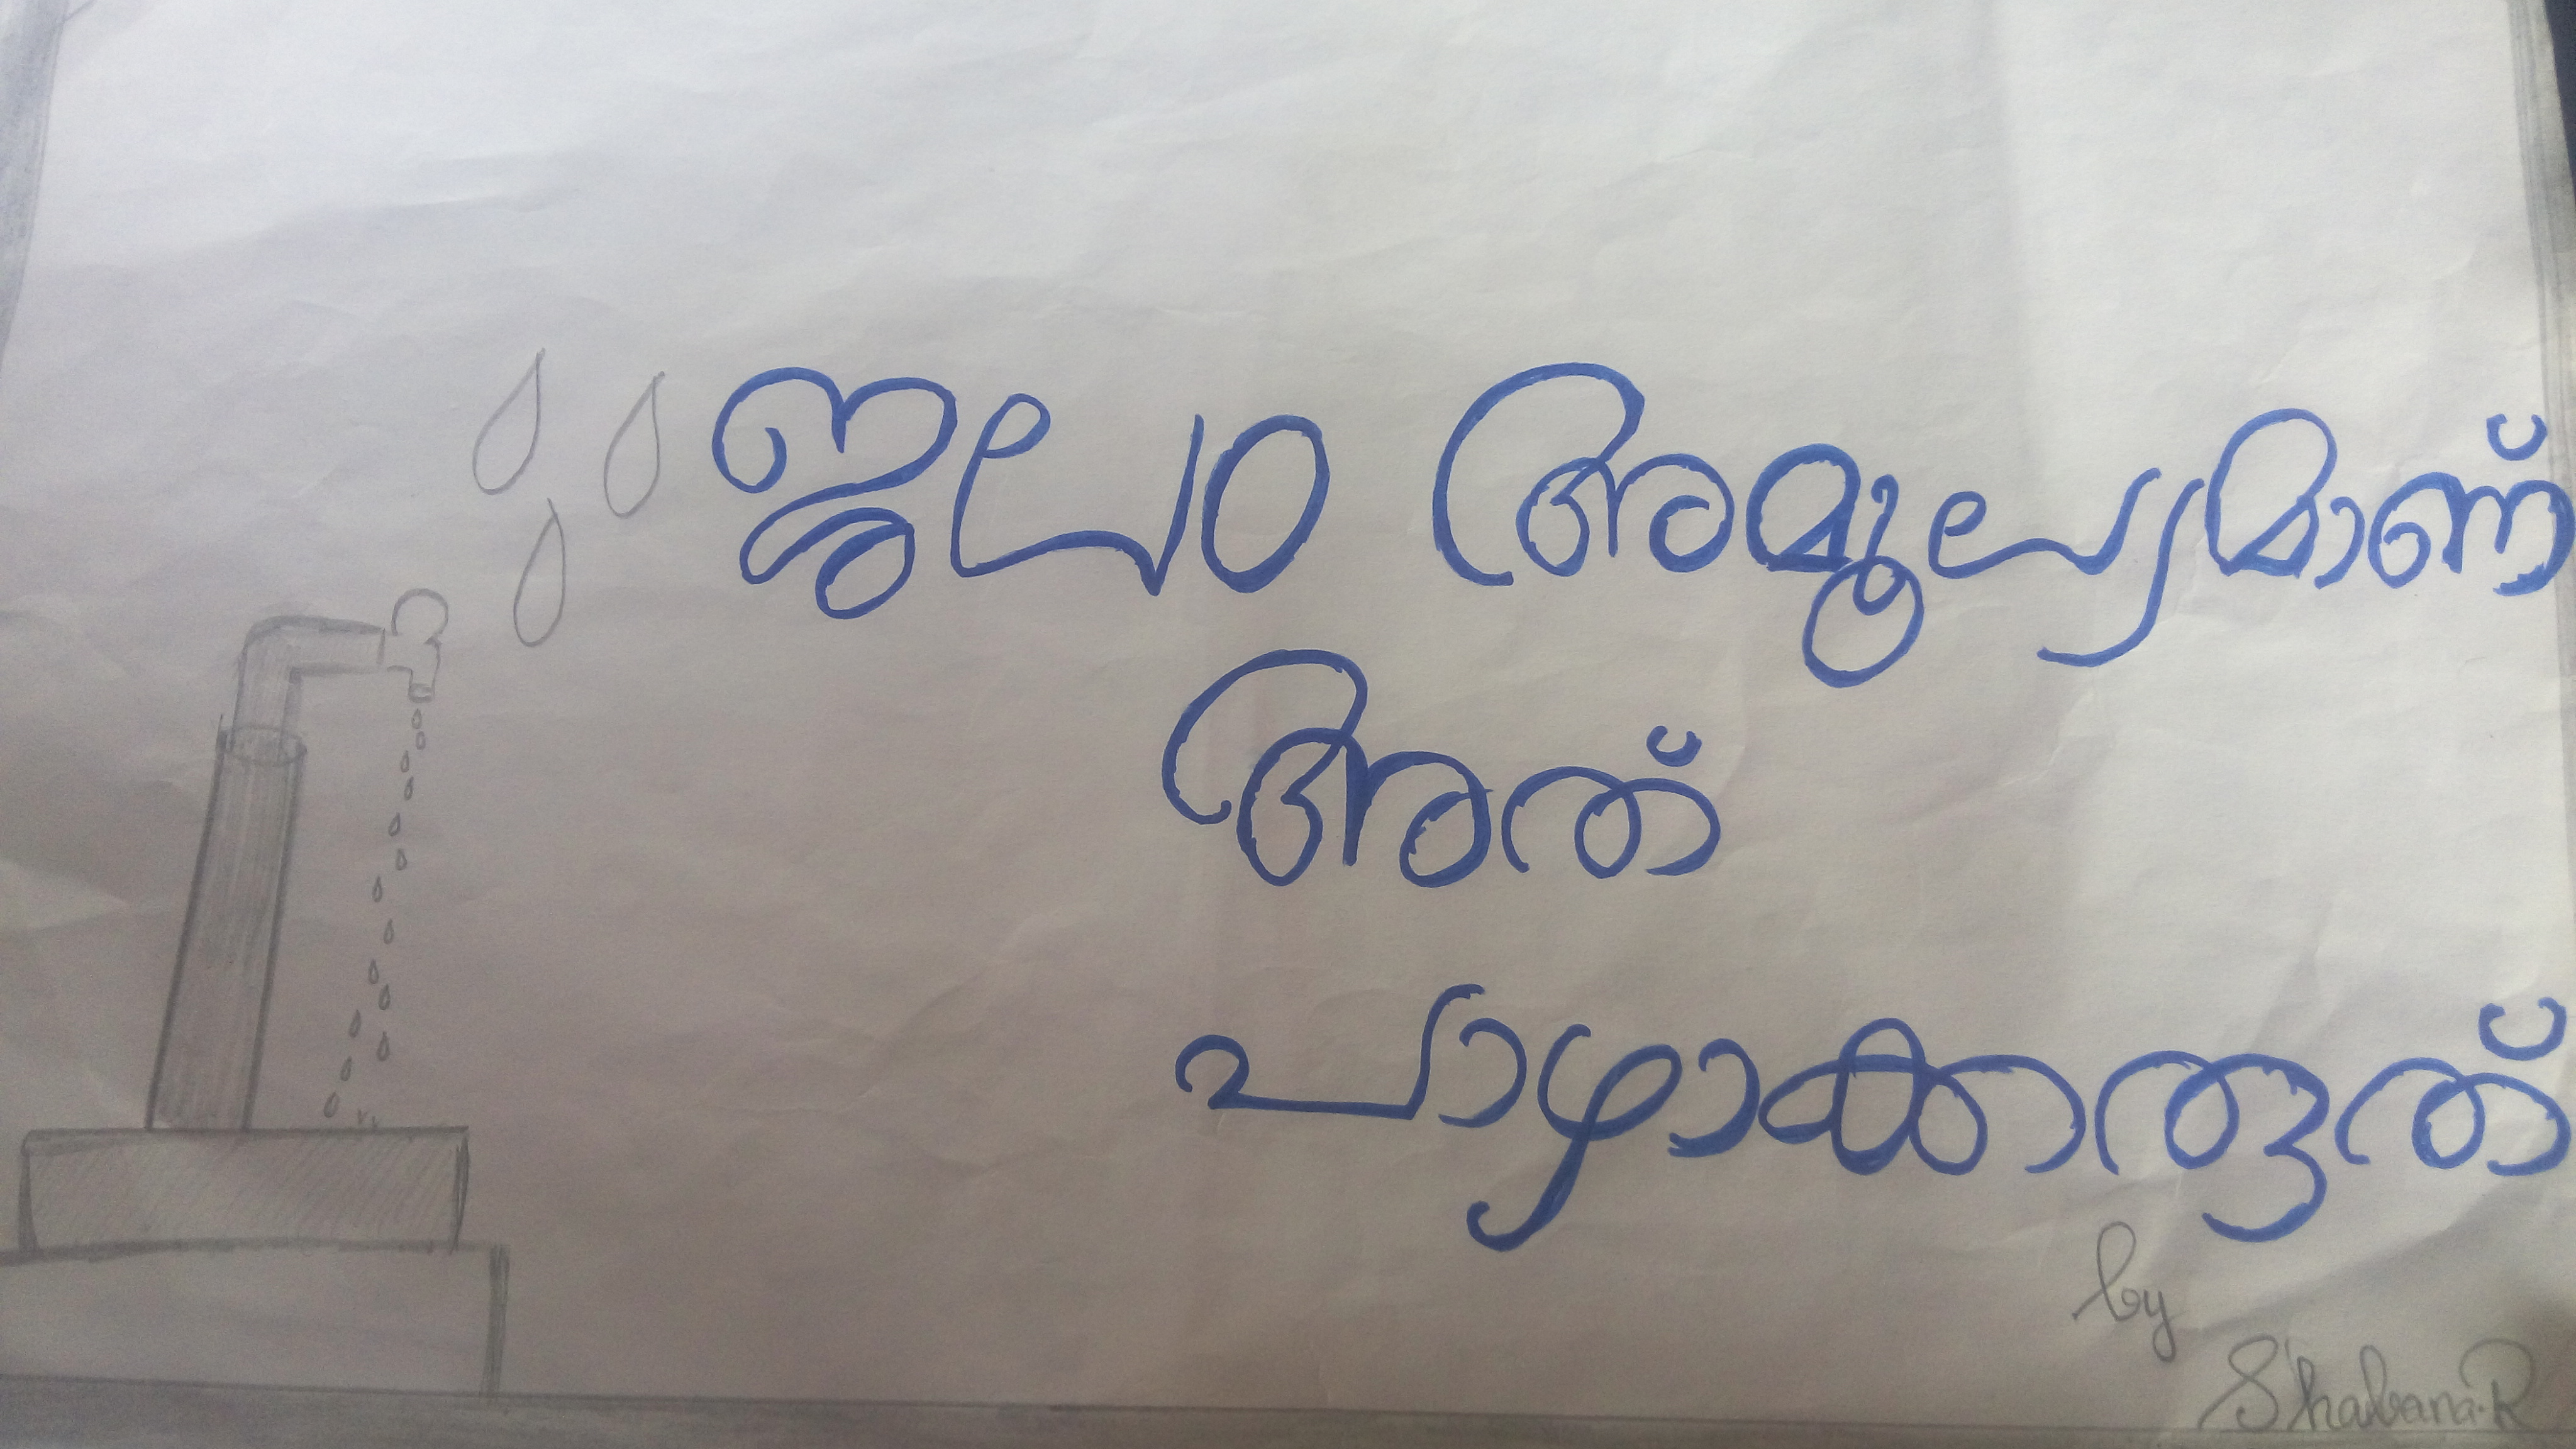 ജലം അമൂല്യമാണ്
അത്
പാഴാക്കരുത്
by
Shabana.R